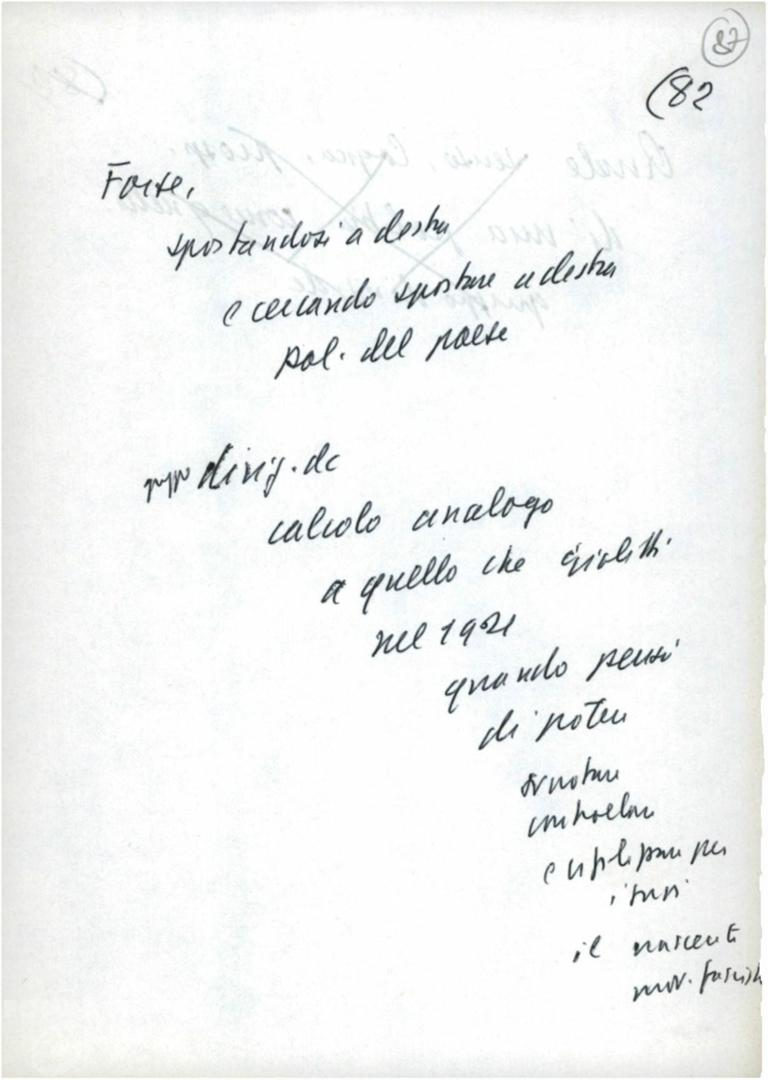 87
(82
Forse,
spostandosi a destra
e cercando spostare a destra
pol. del paese
gruppo dirig. dc
calcolo analogo
a quello che Giolitti
nel 1921
quando pensò
di poter
svuotare
controllare
e utilizzare per
i suoi
il nascente
mov. fascista